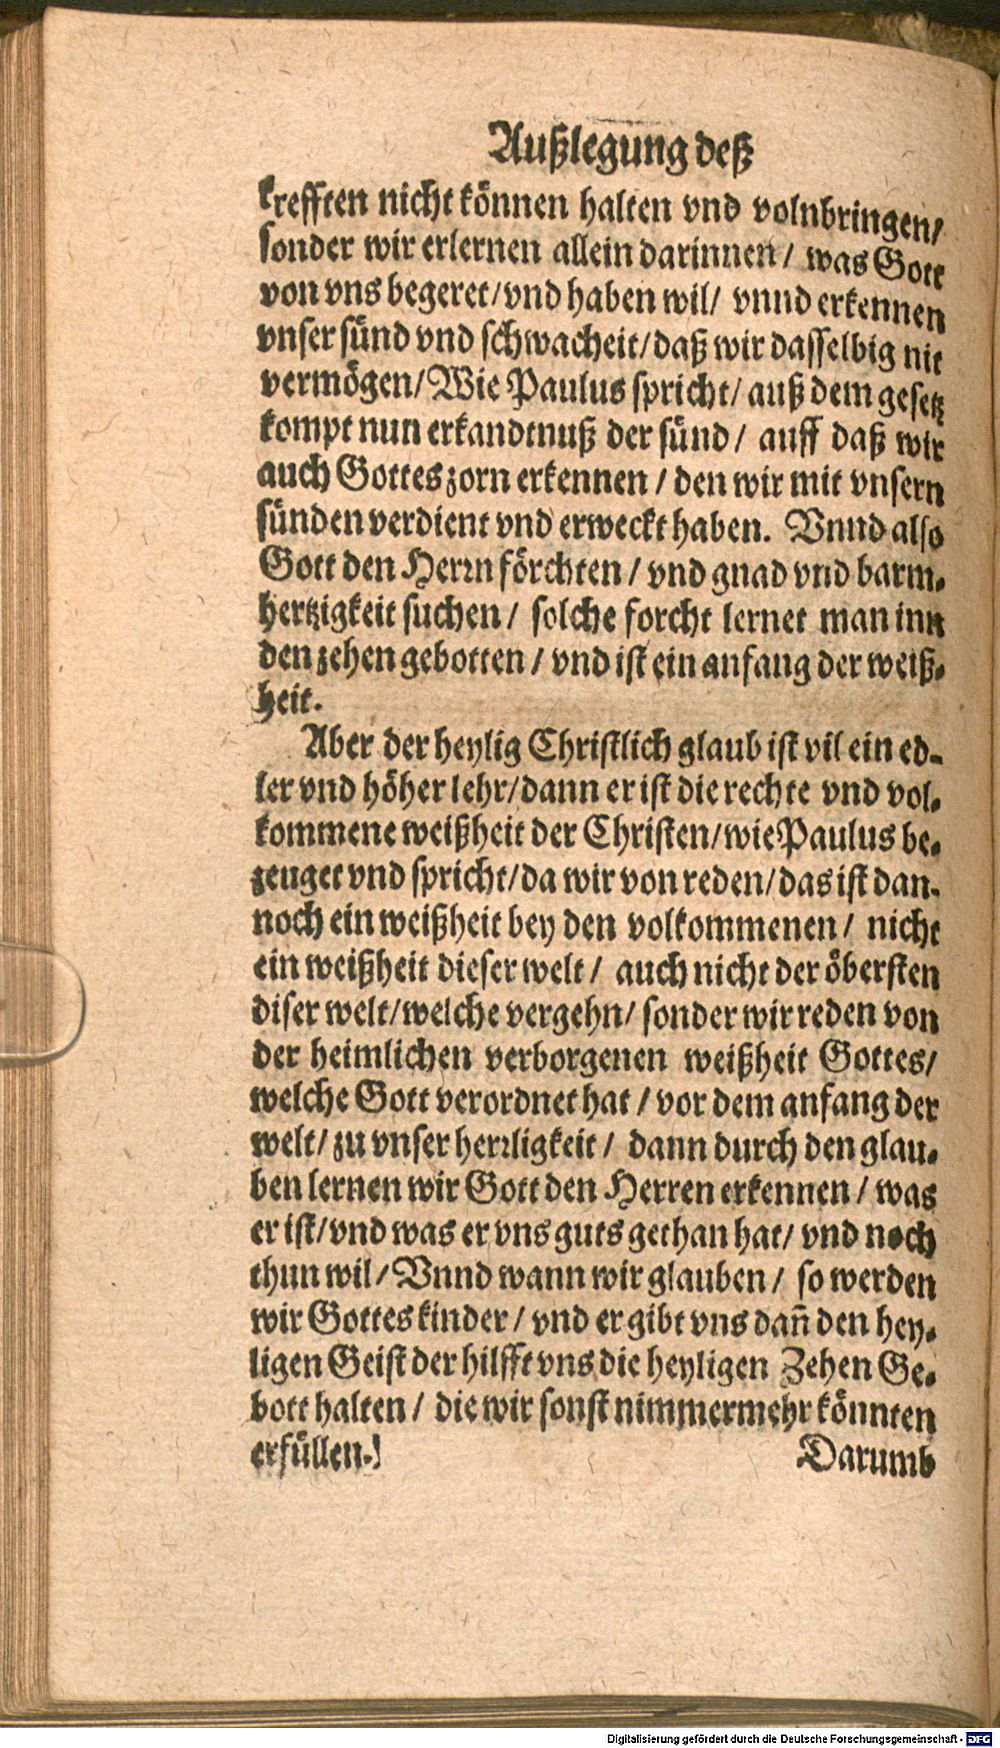 Außlegung deß
krefften nicht können halten vnd volnbringen/
sonder wir erlernen allein darinnen/ was Gott
von vns begeret/vnd haben wil/ vnnd erkennen
vnser sünd vnd schwacheit/daß wir dasselbig nit
vermögen/Wie Paulus spricht/ auß dem gesetz
kompt nun erkandtnuß der sünd/ auff daß wir
auch Gottes zorn erkennen/ den wir mit vnsern
sünden verdient vnd erweckt haben. Vnnd also
Gott den Herrn förchten/ vnd gnad vnd barm-
hertzigkeit suchen/ solche forcht lernet man inn
den zehen gebotten/ vnd ist ein anfang der weiß-
heit.
Aber der heylig Christlich glaub ist vil ein ed-
ler vnd höher lehr/dann er ist die rechte vnd vol-
kommene weißheit der Christen/wie Paulus be-
zeuget vnd spricht/da wir von reden/das ist dan-
noch ein weißheit bey den volkommenen/ nicht
ein weißheit dieser welt/ auch nicht der öbersten
diser welt/welche vergehn/ sonder wir reden von
der heimlichen verborgenen weißheit Gottes/
welche Gott verordnet hat/ vor dem anfang der
welt/ zu vnser herrligkeit/ dann durch den glau-
ben lernen wir Gott den Herren erkennen/ was
er ist/vnd was er vns guts gethan hat/ vnd noch
thun wil/Vnnd wann wir glauben/ so werden
wir Gottes kinder/ vnd er gibt vns dañ den hey-
ligen Geist der hilfft vns die heyligen Zehen Ge-
bott halten/ die wir sonst nimmermehr könnten
erfüllen. Darumb
Digitalisierung gefördert durch die Deutsche Forschungsgemeinschaft - DFG